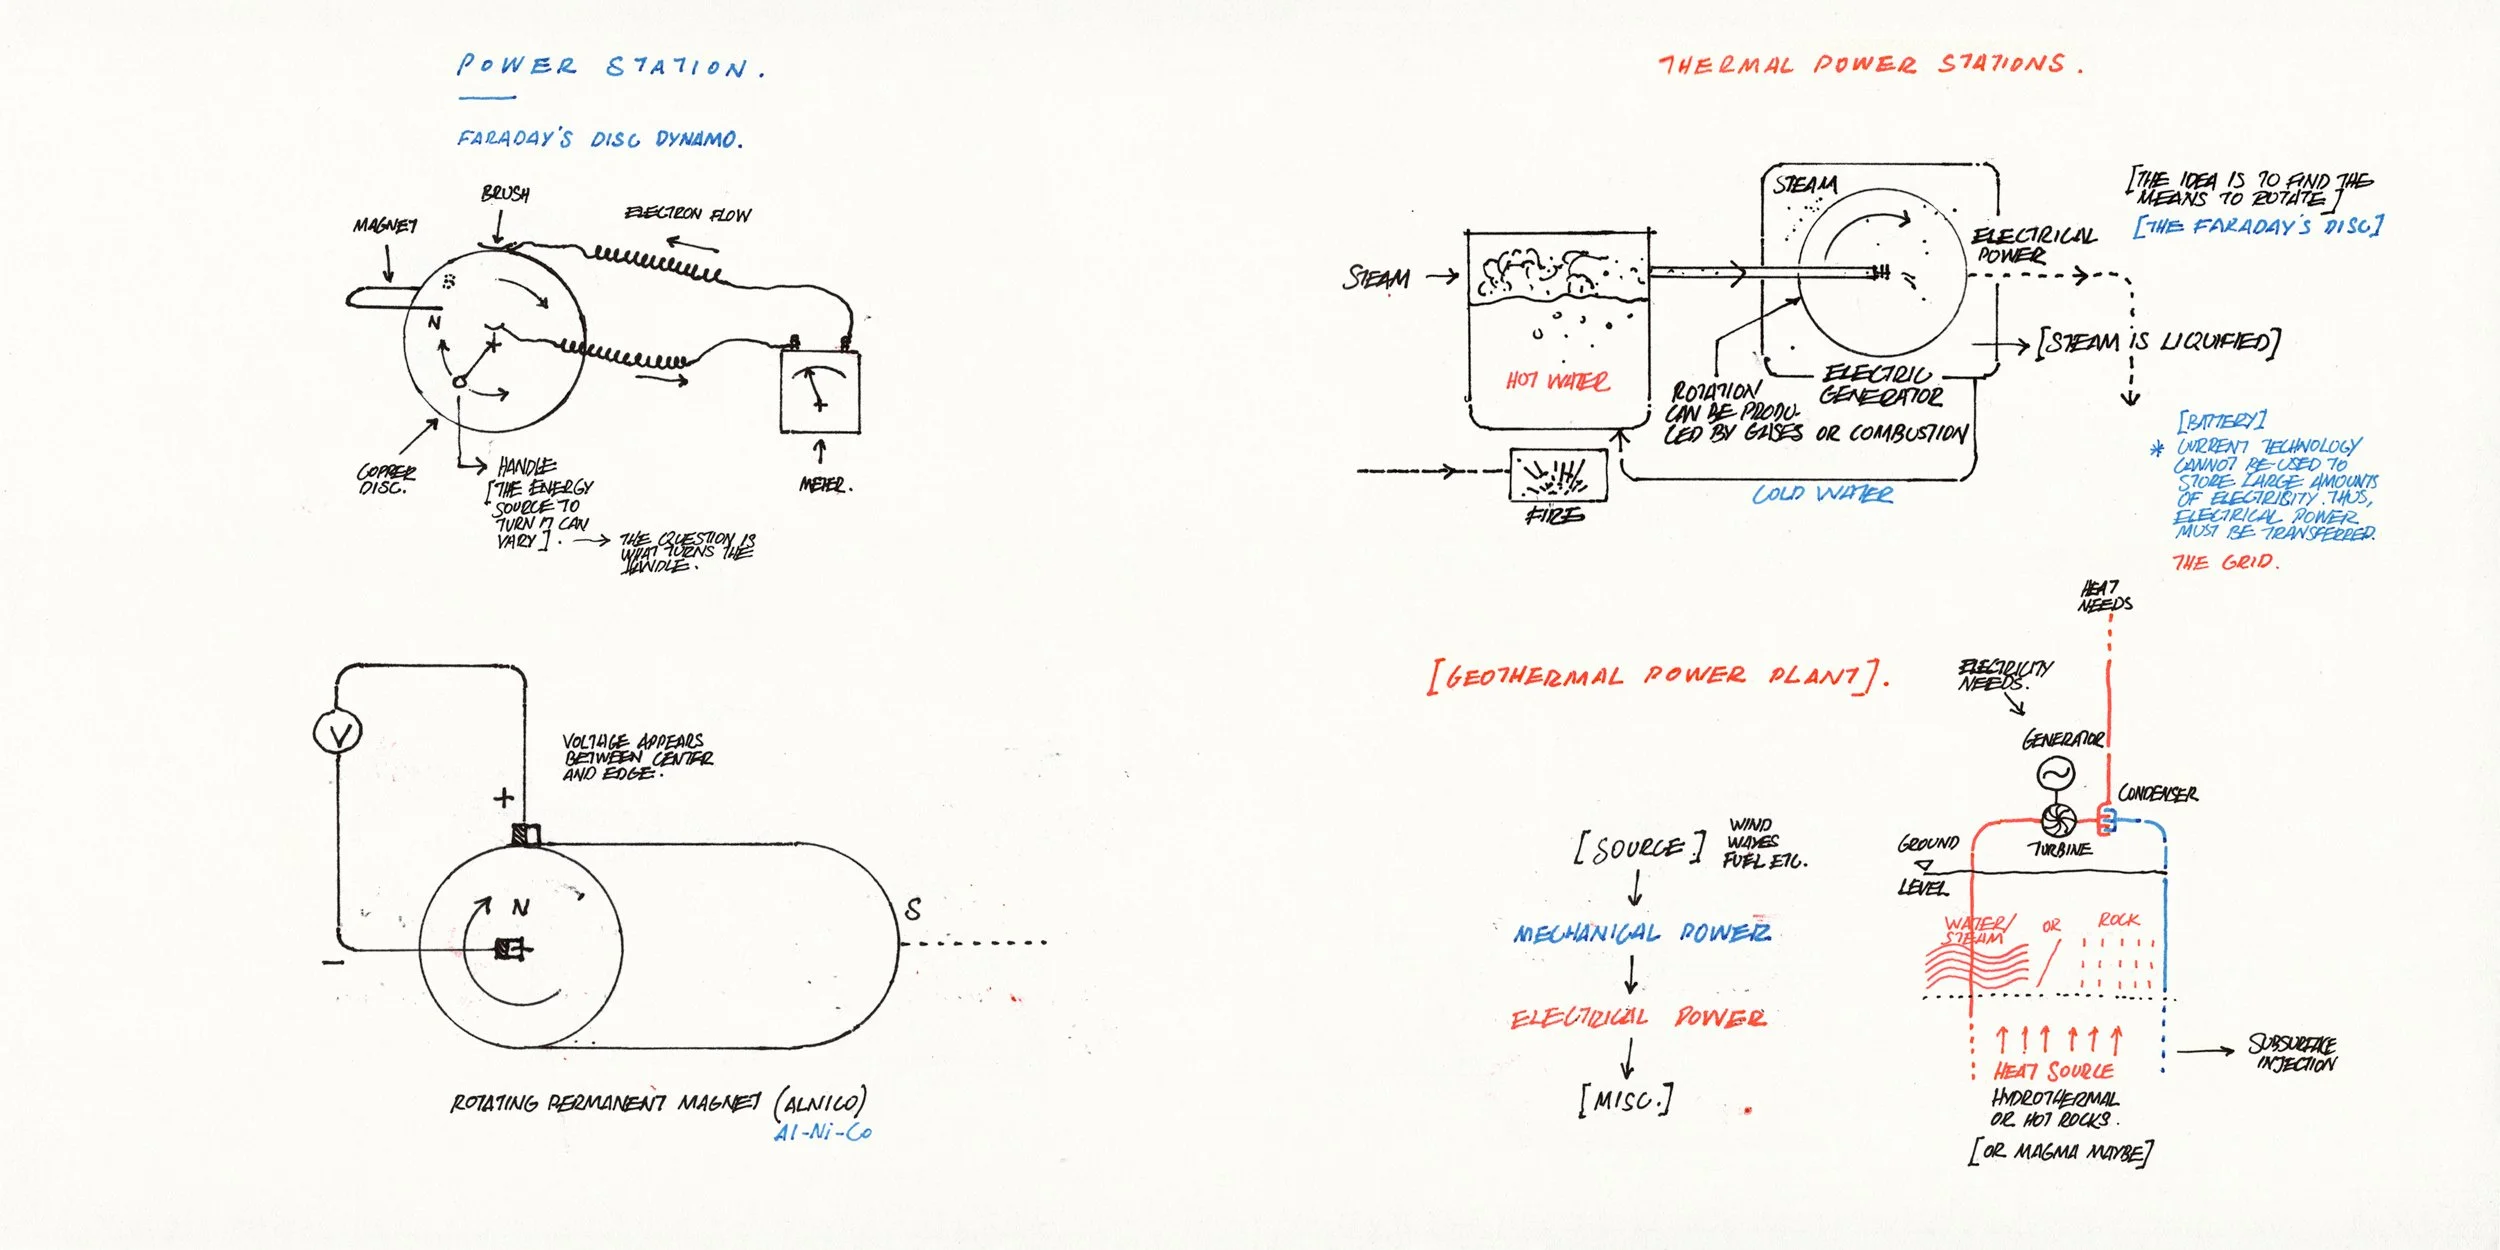 POWER STATION.
FARADAY'S DISC DYNAMO.
BRUSH
MAGNET
ELECTRON FLOW
S
N
COPPER
DISC.
HANDLE
[THE ENERGY
SOURCE TO
TURN IT CAN
VARY].
THE QUESTION IS
WHAT TURNS THE
HANDLE.
METER.
V
VOLTAGE APPEARS
BETWEEN CENTER
AND EDGE.
+
N
S
-
ROTATING PERMANENT MAGNET (ALNICO)
Al-Ni-Co
THERMAL POWER STATIONS.
STEAM
STEAM
HOT WATER
FIRE
COLD WATER
ROTATION
CAN BE PRODU-
CED BY GASES OR COMBUSTION
ELECTRIC
GENERATOR
ELECTRICAL
POWER
[STEAM IS LIQUIFIED]
[THE IDEA IS TO FIND THE
MEANS TO ROTATE]
[THE FARADAY'S DISC]
[BATTERY]
* CURRENT TECHNOLOGY
CANNOT BE USED TO
STORE LARGE AMOUNTS
OF ELECTRICITY. THUS,
ELECTRICAL POWER
MUST BE TRANSFERRED.
THE GRID.
[GEOTHERMAL POWER PLANT].
[SOURCE]
WIND
WAVES
FUEL ETC.
MECHANICAL POWER
ELECTRICAL POWER
[MISC.]
HEAT
NEEDS
ELECTRICITY
NEEDS.
GENERATOR
CONDENSER
TURBINE
GROUND
LEVEL
WATER/
STEAM
OR
ROCK
HEAT SOURCE
HYDROTHERMAL
OR HOT ROCKS.
[OR MAGMA MAYBE]
SUBSURFACE
INJECTION